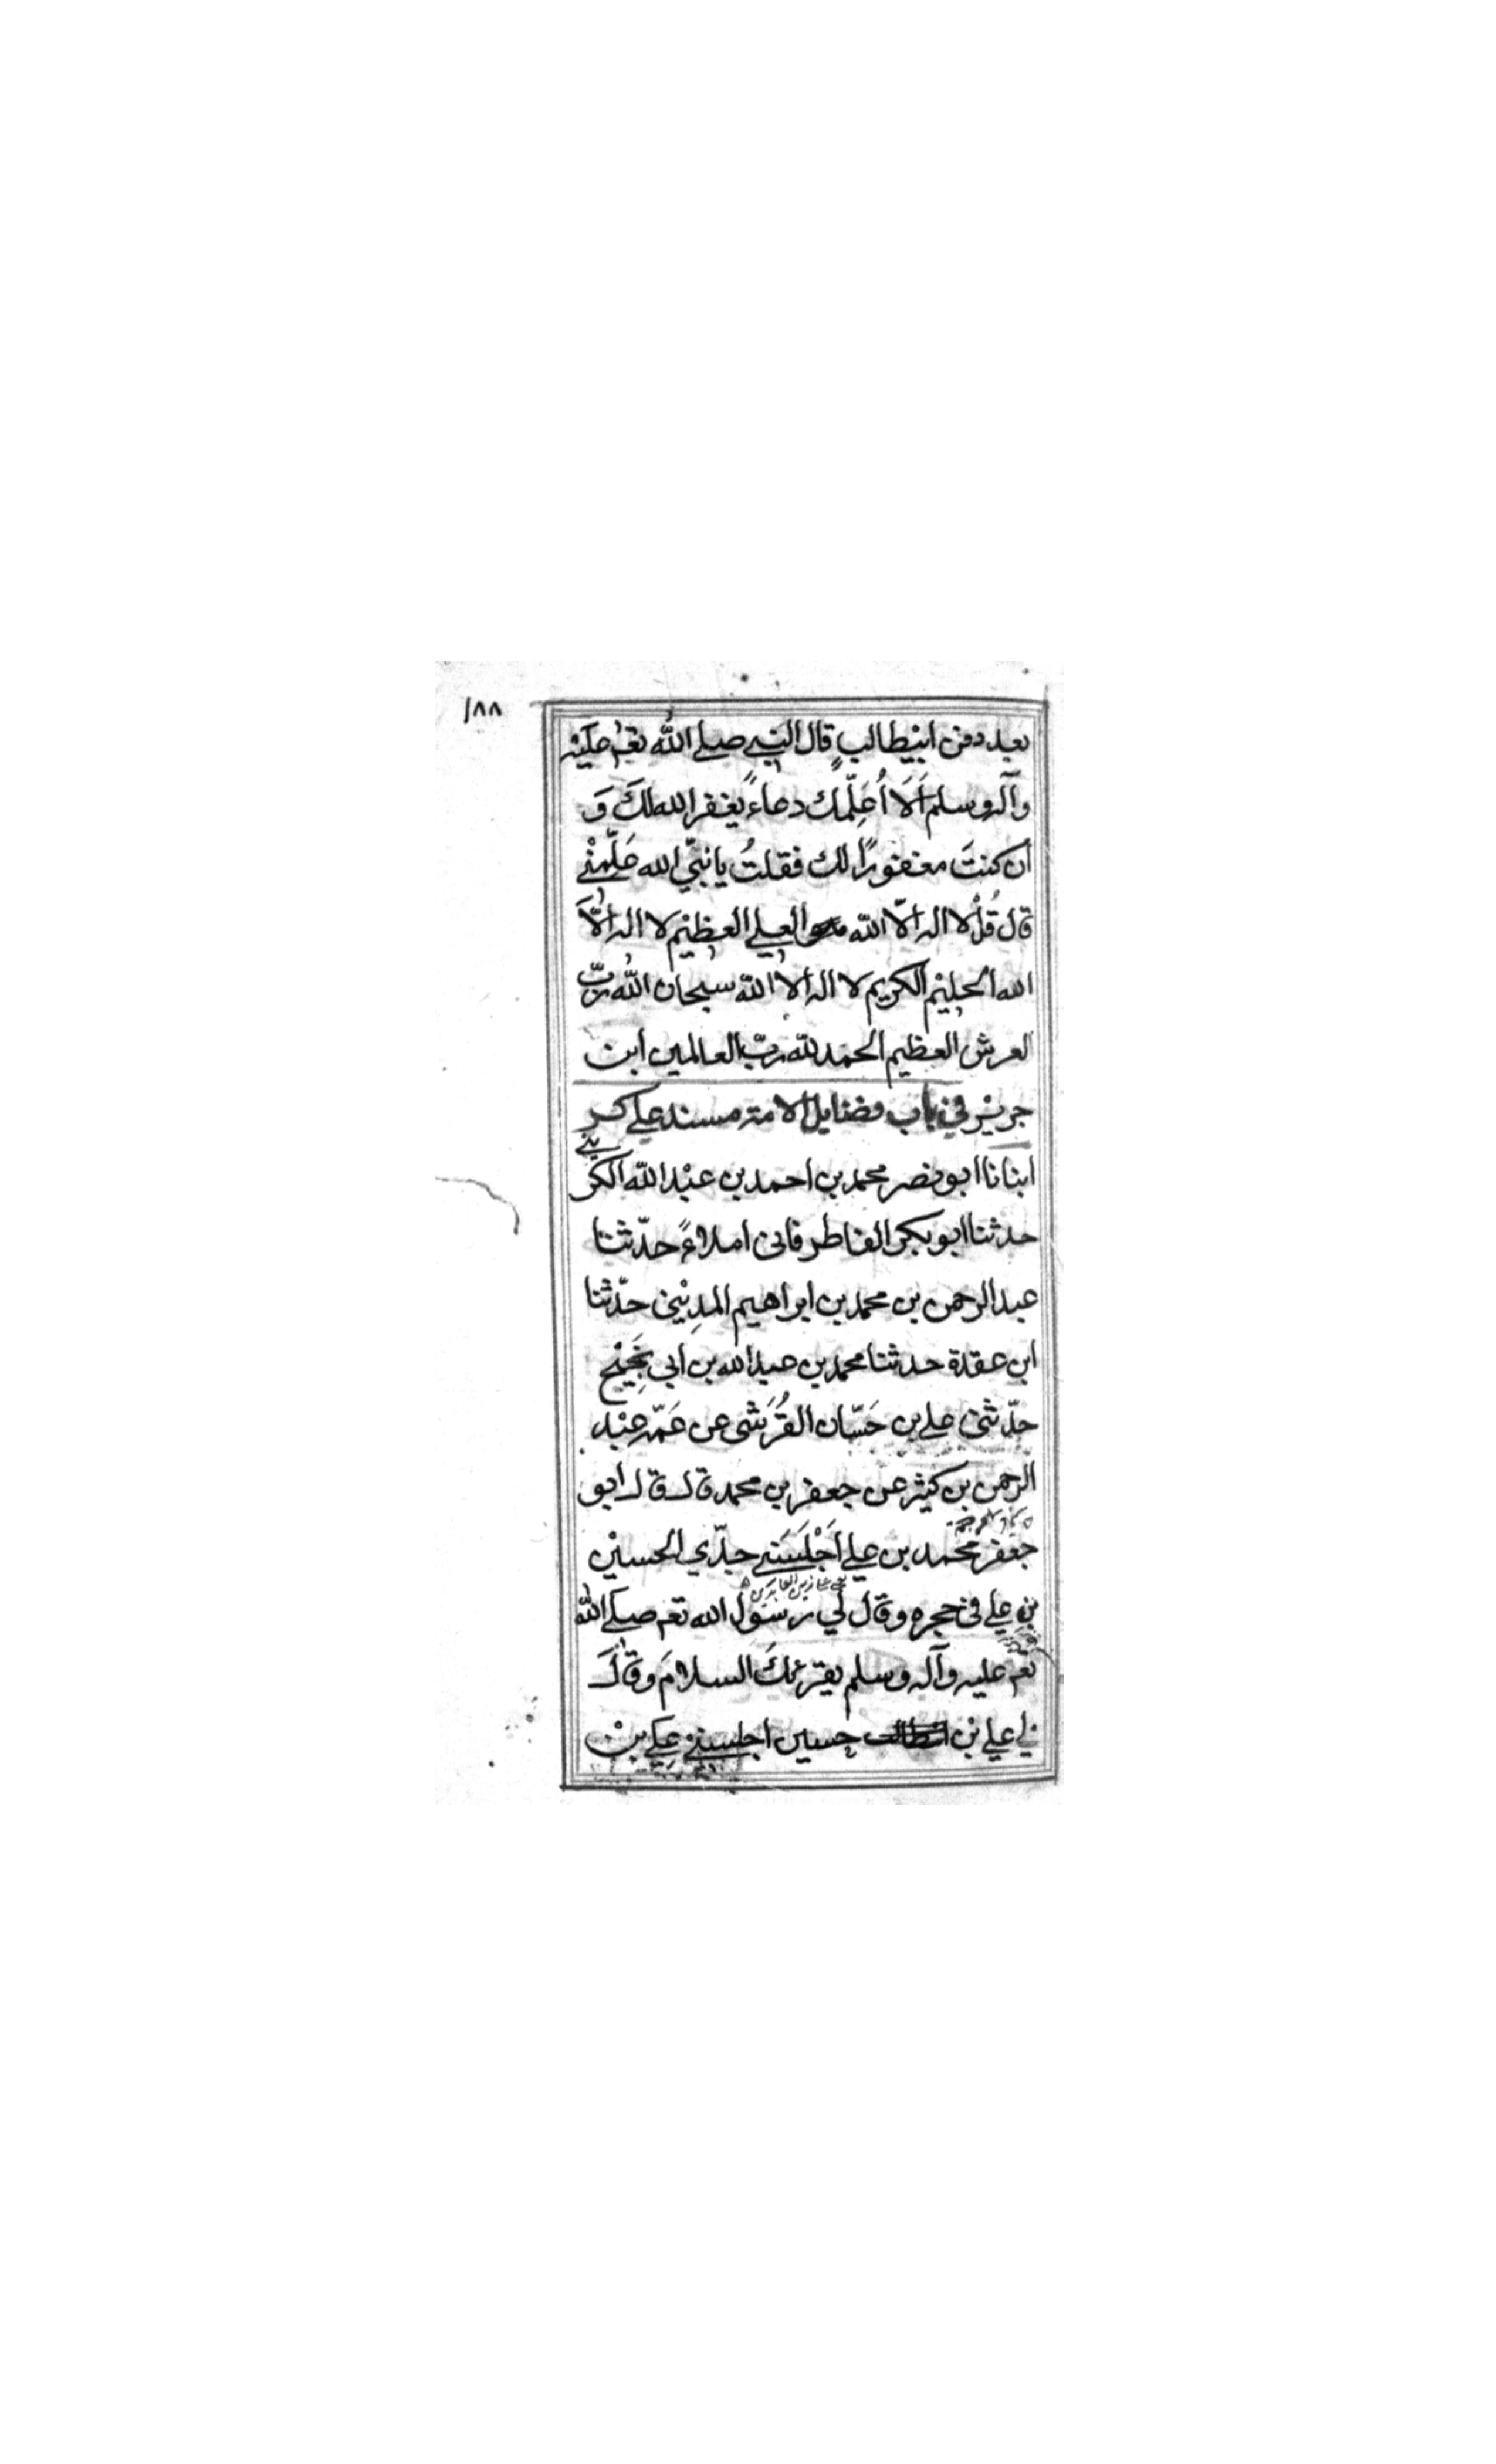 ١٨٨
بعد دفن ابيطالب قال النبي صلے الله تعم عليه
وآله وسلم اَلَا اُعَلِّمك دعاءً يغفر الله لكَ وَ
ان كنتَ مغفورًا لك فقلتُ يا نبيّ الله عَلِّمْنِے
قال قُلْ لا اله الّا الله العلے العظيم لا اله الّا
الله الحليم الكريم لا اله الا الله سبحان الله ربّ
العرش العظيم الحمد لله ربّ العالمين ابن
جرير فى باب فضايل الامة مسند على كر
ابنانا ابو نصر محمد بن احمد بن عبد الله الكر
يتے
حدثنا ابو بكر القاطرفانى املاءً حدّثنا
عبد الرحمن بن محمد بن ابراهيم المدِيْنى حدّثنا
ابن عقدة حدثنا محمد بن عبد الله بن ابي نَجِيْح
حدّثنى على بن حَسّان القُرَشى عن عَمّه عبْد
الرحمن بن كثير عن جعفر بن محمد قال قال ابو
جعفر محمد بن علے اَجْلَسَنے جدّي الحسيْن
بن علے فى حجره وقال لي رسول الله تعم صلے الله
تعم عليه وآله وسلم يقرئك السلامَ وقال
لي علے بن حسين اجلسنے علے بنْ